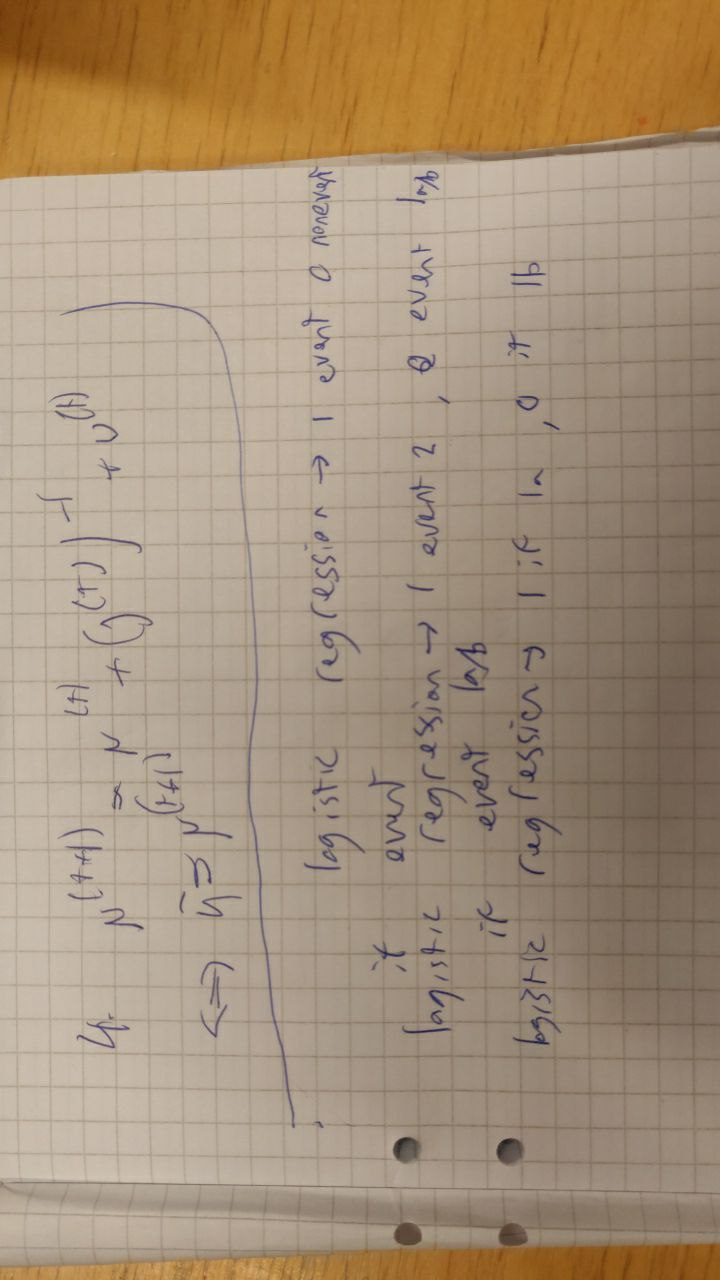 4. μ^(t+1) = μ^(t) + (J^(t))^-1 + U^(t)
<=> ỹ = μ^(t+1)
logistic regression → 1 event 0 nonevent
if event
logistic regression → 1 event 2, 0 event 1a/b
if event 1a/b
logistic regression → 1 if 1a, 0 if 1b